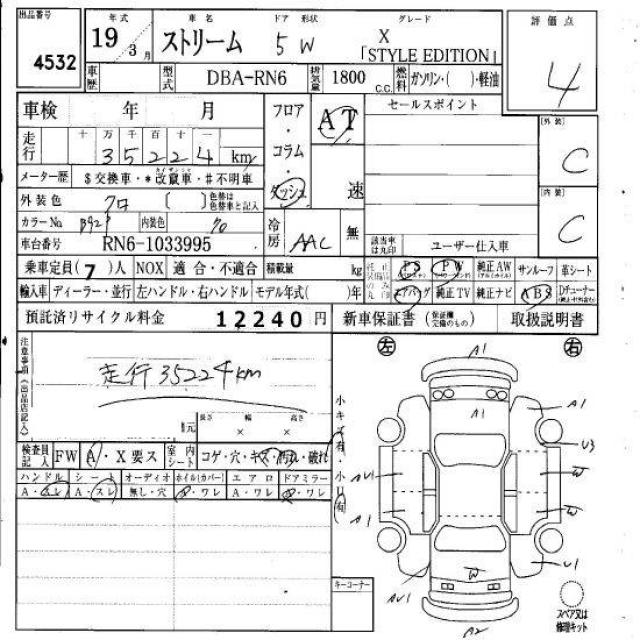 出品番号 4532
年式 19 3月 車名 ストリーム ドア 形状 5 W グレード X 「STYLE EDITION」 評価点 4
車歴 型式 DBA-RN6 排気量 1800 c.c. 燃料 ガソリン・( )・軽油
車検 年 月 フロア・コラム・ダッシュ AT 速 セールスポイント
走行 十 万 千 百 十 一 35224 km 外装 C
メーター歴 $交換車・*改竄車・#不明車
外装色 クロ [ ] 色替は色替車と記入 内装 C
カラーNo B92P 内装色 クロ 冷房 AAC 無
車台番号 RN6-1033995 該当車は丸印 ユーザー仕入車
乗車定員(7)人 NOX 適合・不適合 積載量 kg PS PW 純正AW サンルーフ 革シート
輸入車 ディーラー・並行 左ハンドル・右ハンドル モデル年式( )年 エアバッグ 純正TV 純正ナビ ABS Dチューナー
預託済リサイクル料金 12240円 新車保証書 (保証欄完備のもの) 取扱説明書
注意事項(出品店記入) 走行35224km
長さ × 幅 × 高さ
検査員記入 FW A・X要ス 室内シート コゲ・穴・キズ・汚れ・破れ
ハンドル シート オーディオ ホイル(カバー) エアロ ドアミラー
A・スレ A・スレ 無し・穴 A・ワレ A・ワレ A・ワレ
小キズ有・小凹有
左 右
A1
A1 A1
U3
AU1 W
A1 W
W
AU1 U1
A2
キーコーナー
スペア又は修理キット